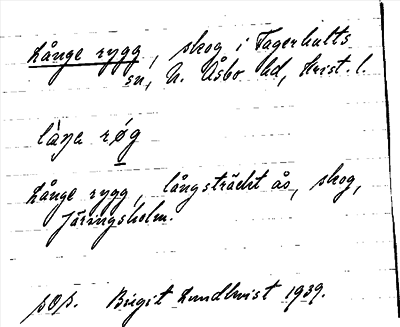 Långe rygg, skog i Fagerhults
sn, N. Åsbo hd, Krist. l.
làŋa røg
Långe rygg, långsträckt ås, skog,
Järingsholm.
pop. Birgit Lundkvist 1939.